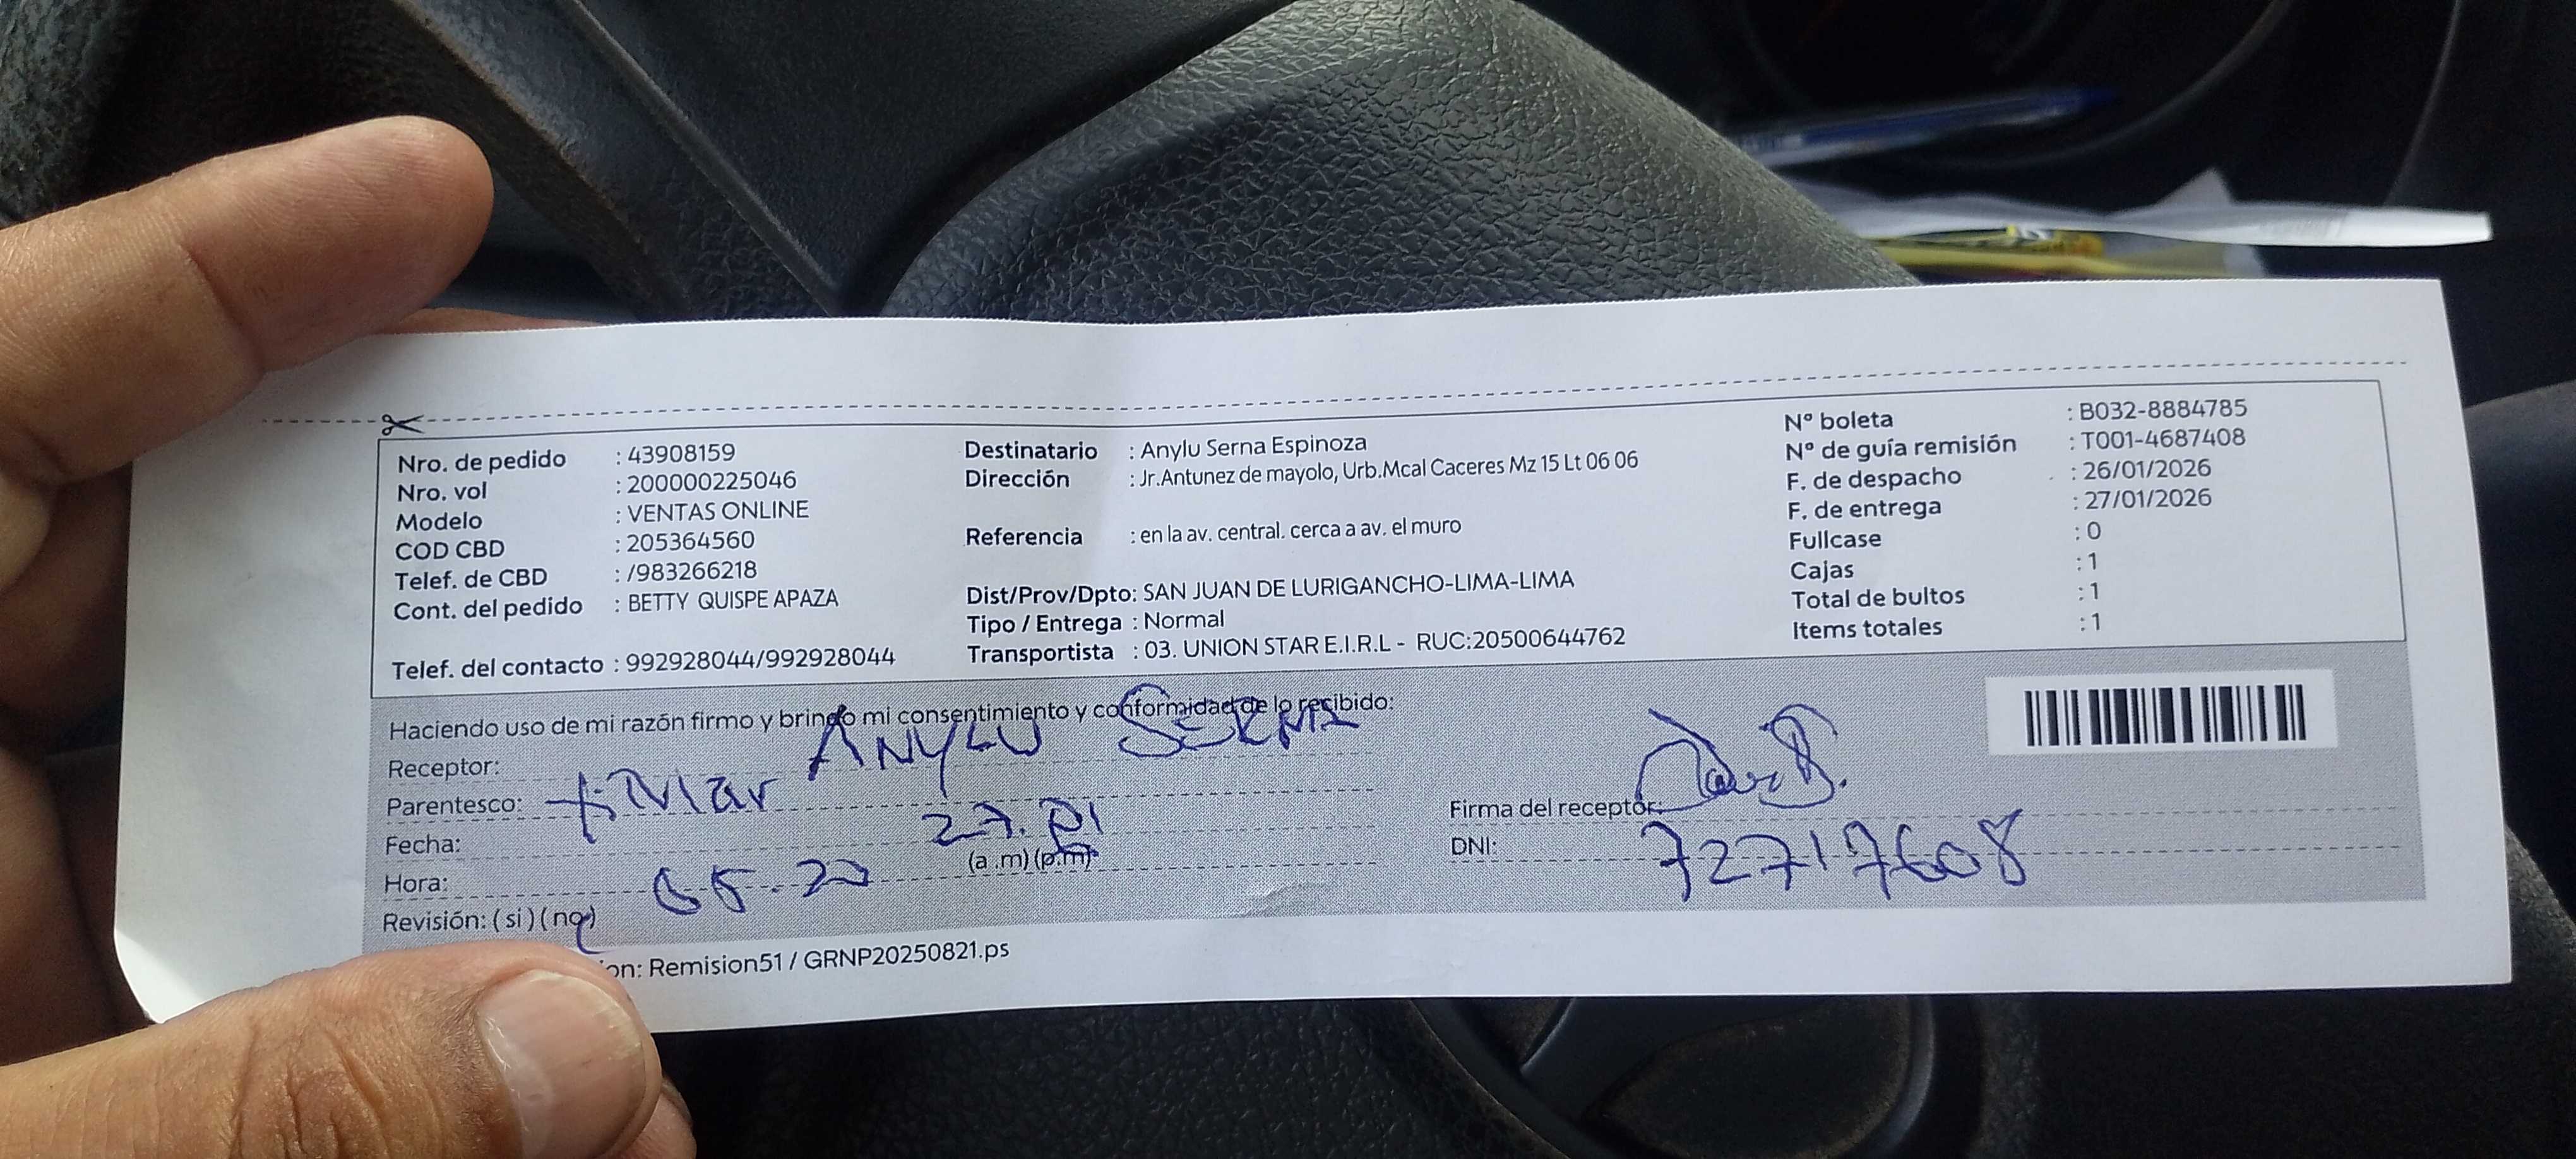 Nro. de pedido : 43908159
Nro. vol : 200000225046
Modelo : VENTAS ONLINE
COD CBD : 205364560
Telef. de CBD : /983266218
Cont. del pedido : BETTY QUISPE APAZA
Telef. del contacto : 992928044/992928044
Destinatario : Anylu Serna Espinoza
Dirección : Jr.Antunez de mayolo, Urb.Mcal Caceres Mz 15 Lt 06 06
Referencia : en la av. central. cerca a av. el muro
Dist/Prov/Dpto: SAN JUAN DE LURIGANCHO-LIMA-LIMA
Tipo / Entrega : Normal
Transportista : 03. UNION STAR E.I.R.L - RUC:20500644762
Nº boleta : B032-8884785
Nº de guía remisión : T001-4687408
F. de despacho : 26/01/2026
F. de entrega : 27/01/2026
Fullcase : 0
Cajas : 1
Total de bultos : 1
Items totales : 1
Haciendo uso de mi razón firmo y brindo mi consentimiento y conformidad de lo recibido:
Receptor: ANYLU SERNA
Parentesco:
Fecha: 27.01
Hora: 05.20 (a.m) (p.m)
Revisión: ( si ) ( no )
Firma del receptor:
DNI: 72717608
on: Remision51 / GRNP20250821.ps